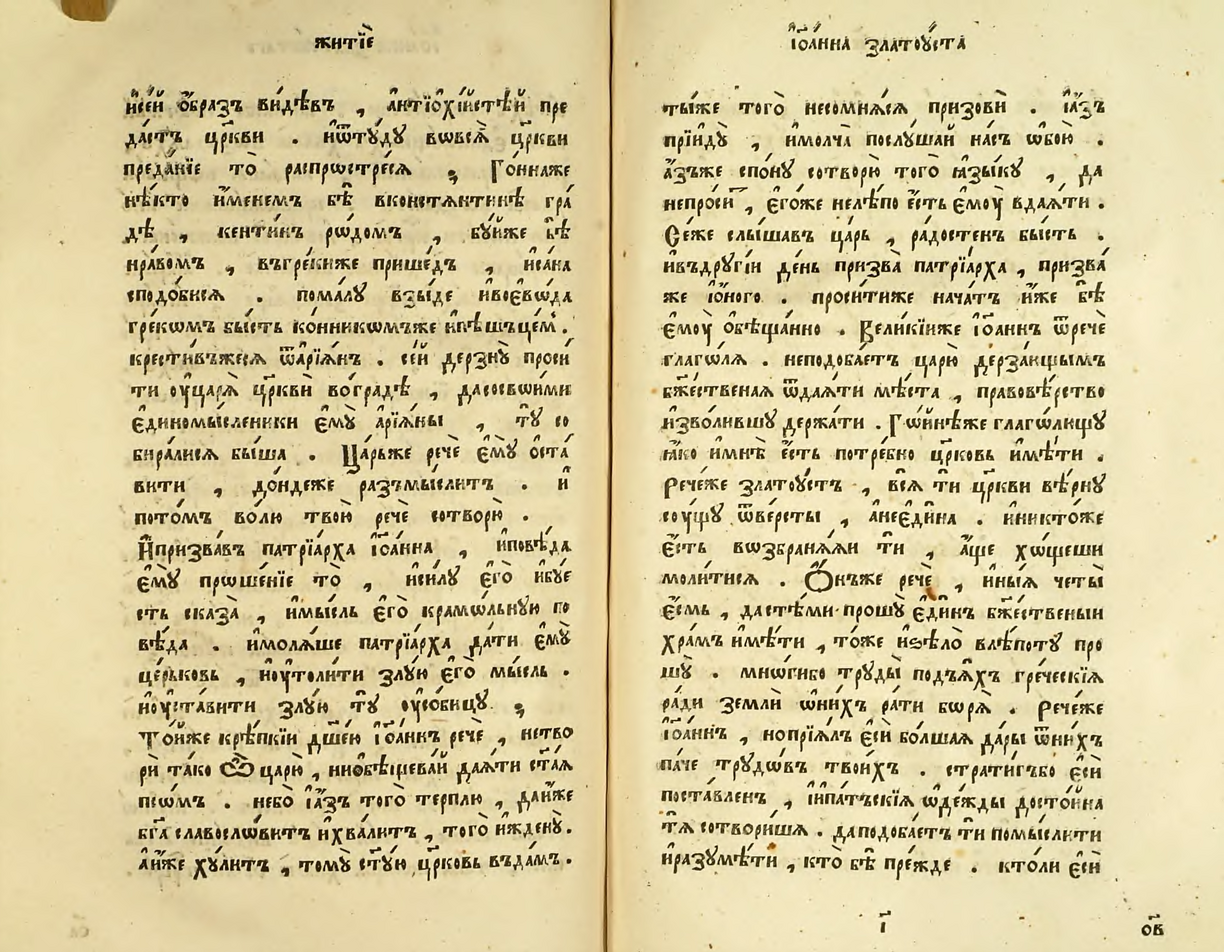 житїе
исей ѻ҆́бразъ видѣвъ , антїохїйстѣй пре
дастъ црⷪ҇кви . иѿтуду вовсѧ црⷪ҇кви
преданїе то распрострѣсѧ ; Гоинаже
нѣкто именемъ бѣ вконстѧнтинѣ гра
дѣ , кентинъ рѡдомъ , буйже бѣ
нравомъ , въгрекиже пришедъ , исана
сподобисѧ . помалꙋ взыде ивоевѡда
грекѡмъ бысть конникѡмъже ипѣшъцемъ .
крестивъжесѧ ѿарїѧнъ . сей дерзнꙋ проси
ти оуцарѧ црⷪ҇кви воградѣ , дасосвшими
единомысленики емꙋ арїѧны , тꙋ со
биралисѧ быша . Царьже рече емꙋ оста
вити , дондеже разъмыслитъ . и
потомъ волю твою рече сотворю .
Ипризвавъ патрїарха їоанна , иповѣда
емꙋ прѡшенїе то , исилꙋ его ибꙋе
сть сказа , имысль его крамѡльнꙋю по
вѣда . имолѧше патрїарха дати емꙋ
церьковь , иоутолити злꙋю его мысль .
иоуставити злꙋю тꙋ оусобицꙋ ;
Тойже крѣпкїи дш҃ею їоаннъ рече , нетво
ри тако ѽ царю , ниобѣщевай даѧти ст҃аѧ
псѡмъ . небо їазъ того терплю , даиже
бг҃а славослѡвитъ ихвалитъ , того ижденꙋ .
аиже хꙋлитъ , томꙋ ст҃ꙋю црⷪ҇ковь въдамъ .
їоанна златоꙋста
тыже того несомнѧсѧ призови . їазъ
прїидꙋ , имолча послꙋшай насъ ѡбою .
азъже спонꙋ сотворю того ꙗзыкꙋ , да
непросит , егоже нелѣпо есть емоу вдаѧти .
Сеже слышавъ царь , радостенъ бысть .
ивъдрꙋгїи день призва патрїарха , призва
же їоного . проситиже начатъ иже бѣ
емоу обѣщанно . Великїиже їоаннъ ѿрече
глагѡлѧ . неподобаетъ царю дерзаищымъ
бж҃ественаѧ ѿдаѧти мѣста , правовѣрство
изволившꙋ держати . Гѡйинѣже глагѡлищꙋ
ꙗко имнѣ есть потребно црⷪ҇ковь имѣти .
Речеже златоꙋстъ , всѧ ти црⷪ҇кви вѣрнꙋ
соущꙋ ѿверсты , анеєдина . иниктоже
есть возбранѧѧи ти , аще хощеши
молитисѧ . Ѻнъже рече , иныѧ четы
есмь , дастѣми прошꙋ единъ бж҃ественыи
храмъ имѣти , тоже иѕѣло влѣпотꙋ про
шꙋ . мнѡгибо трꙋды подъѧхъ греческїѧ
ради земли ѡнихъ рати борѧ . Речеже
їоаннъ , нопрїѧлъ еси болшаѧ дары ѿнихъ
паче трꙋдѡвъ твоихъ . стратигъбо еси
поставленъ , їипатьскїѧ ѡдежды достойна
тѧ сотворишѧ . даподобаетъ ти помыслити
иразꙋмѣти , кто бѣ прежде . ктоли еси
ї ов